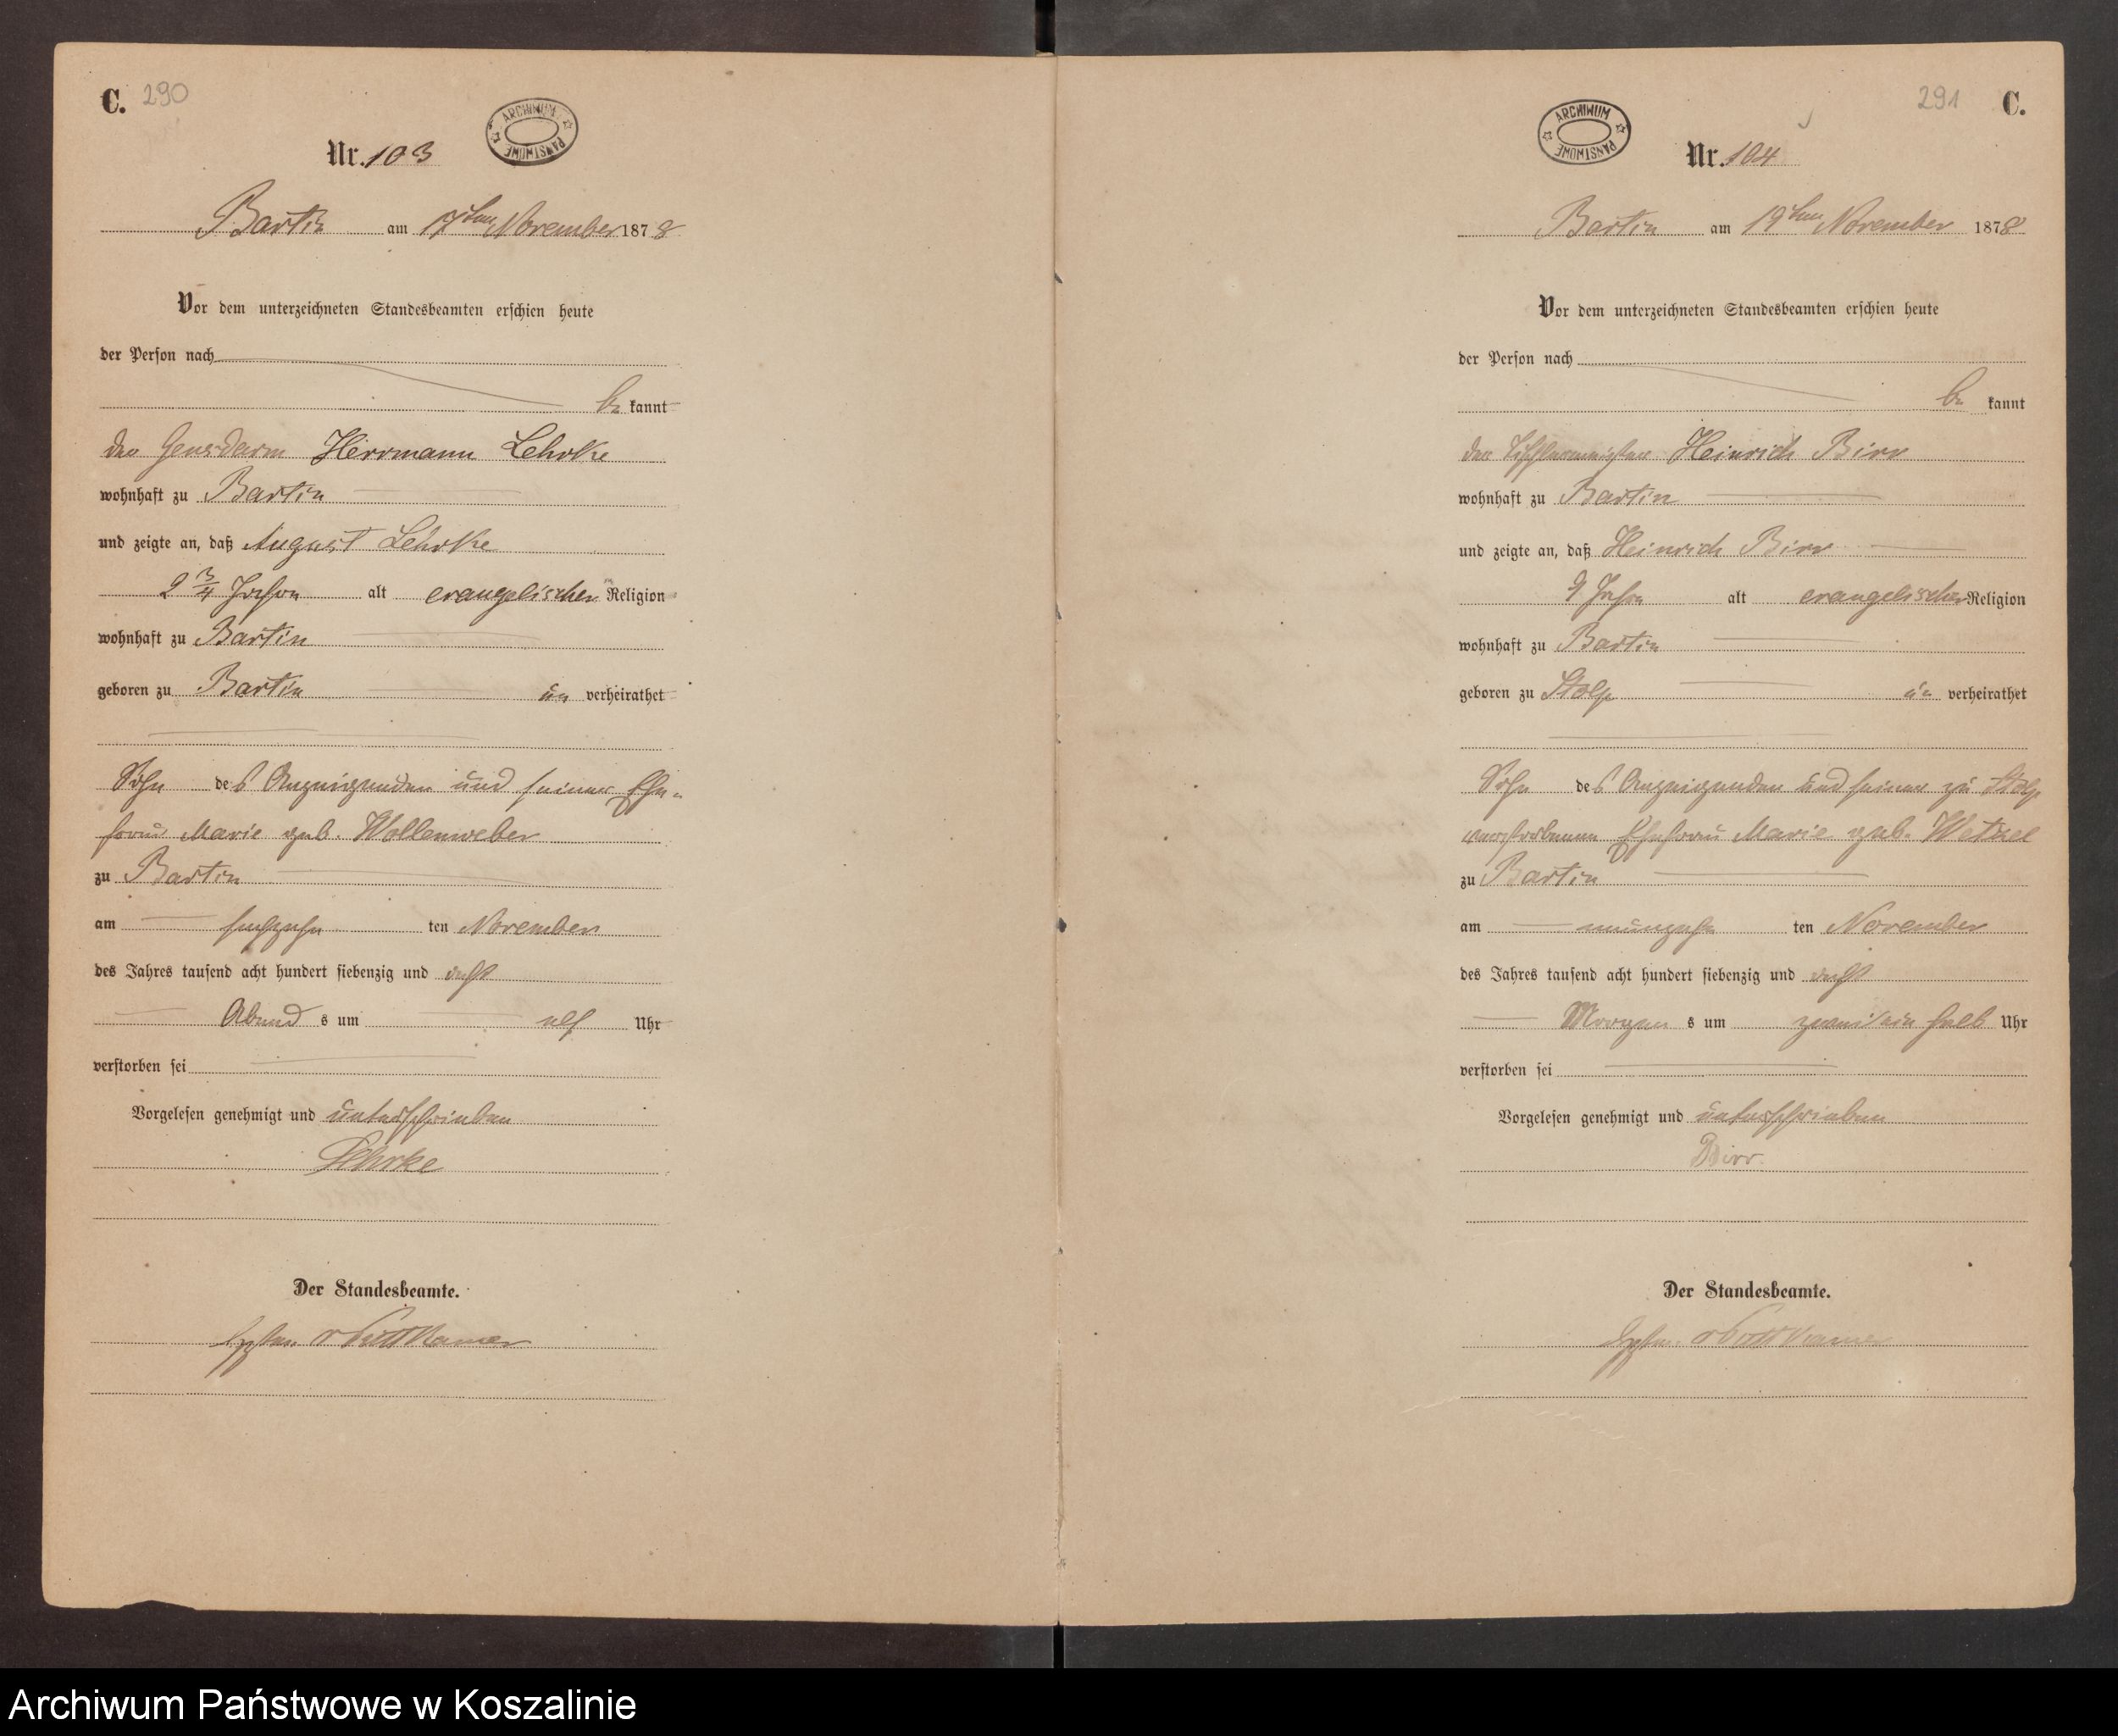 C. 290
ARCHIWUM PAŃSTWOWE
Nr. 103
Bartin am 17ten November 1878
Vor dem unterzeichneten Standesbeamten erschien heute
der Person nach
be kannt
der Gensdarm Herrmann Lehrke
wohnhaft zu Bartin
und zeigte an, daß August Lehrke
2 3/4 Jahren alt evangelischer Religion
wohnhaft zu Bartin
geboren zu Bartin un verheirathet
Sohn des Anzeigenden und seiner Ehe-
frau Marie geb. Wollenweber
zu Bartin
am sechszehn ten November
des Jahres tausend acht hundert siebenzig und acht
Abend s um elf Uhr
verstorben sei
Vorgelesen genehmigt und unterschrieben
Lehrke
Der Standesbeamte.
v Puttkamer
291 C.
ARCHIWUM PAŃSTWOWE
Nr. 104
Bartin am 19ten November 1878
Vor dem unterzeichneten Standesbeamten erschien heute
der Person nach
be kannt
der Tischlermeister Heinrich Birr
wohnhaft zu Bartin
und zeigte an, daß Heinrich Birr
9 Jahre alt evangelischer Religion
wohnhaft zu Bartin
geboren zu Stolp un verheirathet
Sohn des Anzeigenden und seiner zu Stolp
verstorbenen Ehefrau Marie geb. Wetzel
zu Bartin
am neunzehn ten November
des Jahres tausend acht hundert siebenzig und acht
Morgen s um zwei ein halb Uhr
verstorben sei
Vorgelesen genehmigt und unterschrieben
Birr.
Der Standesbeamte.
v Puttkamer
Archiwum Państwowe w Koszalinie